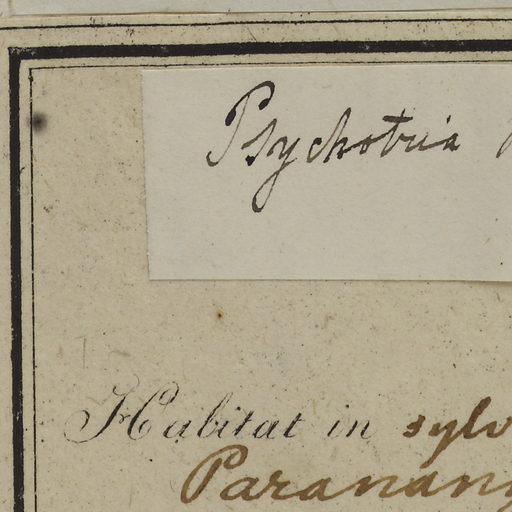 Psychotria
Habitat in sylv
Paranang